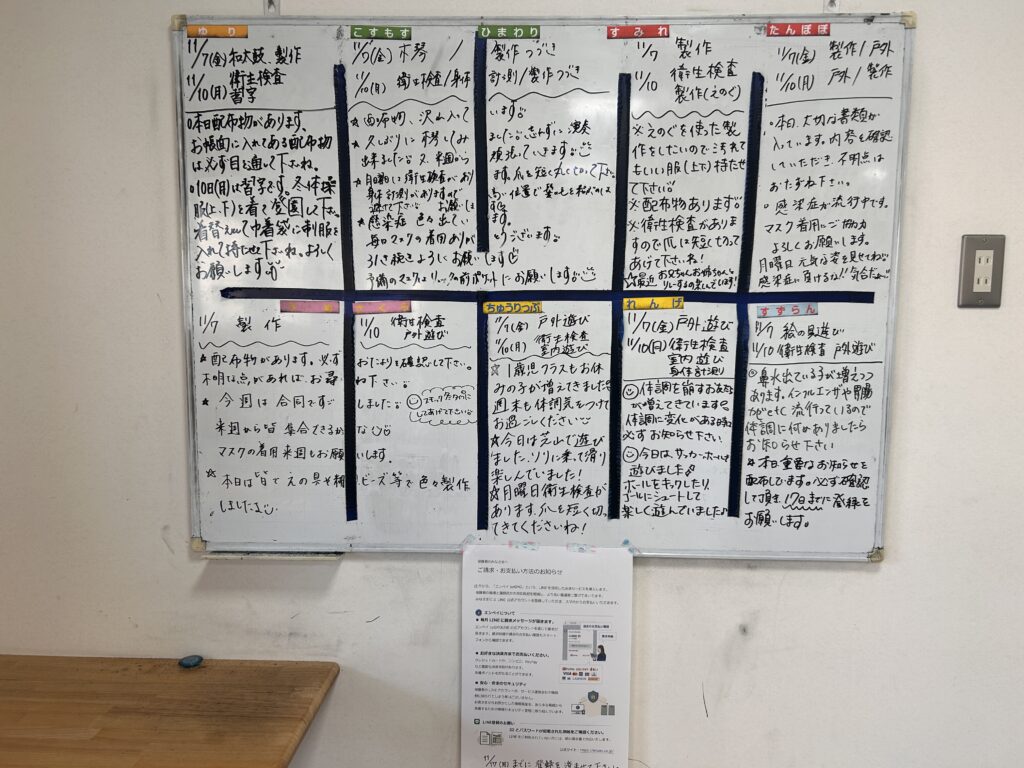 ゆり
11/7(金) 和太鼓、製作
11/10(月) 衛生検査
習字
○本日配布物があります。
お帳面に入れてある配布物
は必ず目を通して下さいね。
○10日(月)は習字です。冬体操
服(上、下)を着て登園して下さい。
着替えとして巾着袋に制服を
入れて持たせて下さいね。よろしく
お願いします
こすもす
11/7(金) 木琴 /
11/10(月) 衛生検査/身体
ひまわり
製作つづき
計測/製作つづき
★配布物、沢山入って います。
久しぶりに木琴をしみ ました。忘れずに演奏
出来ました 又、来週から 頑張っていきます
★月曜日に衛生検査があり ます。爪を短く丸く切って下さい。
身体計測がありますので
★感染症 色々出てい ます。
毎日マスクの着用ありが とうございます。
引き続きよろしくお願い します
予備のマスクはリュックの前ポケット にお願いします
すみれ
11/7 製作
11/10 衛生検査
製作(えのぐ)
※えのぐを使った製
作をしたいので汚れて
もいい服(上下)持たせ
て下さいね!
※配布物あります。
※衛生検査がありま
すので爪は短く切って
あげて下さいね!
☆最近 お兄ちゃんお姉ちゃんと
リレーするの楽しんでいます!
たんぽぽ
11/7(金) 製作/戸外
11/10(月) 戸外/製作
○本日、大切な書類が
入っています。内容を確認
していただき、不明点は
おたずね下さい。
○感染症が流行中です。
マスク着用にご協力
よろしくお願いします。
月曜日元気な姿を見せてね
感染症に負けるな!!気合だぁ〜
11/7 製作
★配布物があります。必ず
不明な点があれば、お尋
★今週は合同です
来週から皆 集合できるか
マスクの着用来週もお願
★本日は皆でえの具や綿
しました
11/10 衛生検査
戸外遊び
おたよりを確認して下さい。
ね下さい。
しました
な
います。
ビーズ等で色々製作
ちゅうりっぷ
11/7(金) 戸外遊び
11/10(月) 衛生検査
室内遊び
☆1歳児クラスもお休
みの子が増えてきました
週末も体調気をつけて
お過ごしください
☆今日は芝山で遊び
ました。ソリに乗って滑り
楽しんでいました!
☆月曜日衛生検査が
あります。爪を短く切っ
てきてくださいね!
れんげ
11/7(金) 戸外遊び
11/10(月) 衛生検査
室内遊び
身体計測
体調を崩すお友だち
が増えてきています。
体調に変化がある時は
必ずお知らせ下さい。
今日は、サッカーボールで
遊びました♪
ボールをキックしたり、
ゴールにシュートして
楽しく遊んでいました♪
すずらん
11/7 絵の具遊び
11/10 衛生検査 戸外遊び
◎鼻水出ている子が増えつつ
あります。インフルエンザや胃腸
かぜetc 流行っているので
体調に何かありましたら
お知らせ下さい
★本日重要なお知らせを
配布しています。必ず確認
して頂き、17日までに登録を
お願いします。
保護者のみなさまへ
ご請求・お支払い方法のお知らせ
エンペイについて
● 毎月 LINE に請求メッセージが届きます。
● お好きな決済方法でお支払いください。
● 安心・安全のセキュリティ
LINE登録のお願い
ID とパスワードが記載された用紙をご確認ください。
11/17(月)までに登録を済ませて下さい。